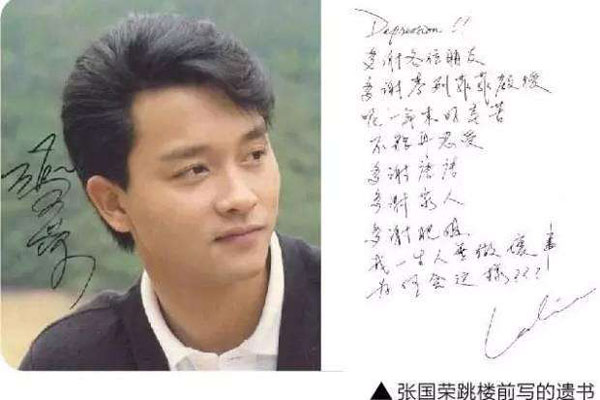 張國榮
Depression!!
多謝各位朋友
多謝麥列菲菲教授
呢一年來好辛苦
不能再忍受
多謝唐唐
多謝家人
多謝肥姐
我一生人無做壞事
為何會這樣???
Leslie
▲ 张国荣跳楼前写的遗书